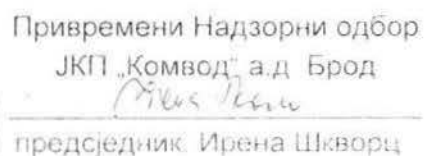 Привремени Надзорни одбор
ЈКП „Комвод“ а.д Брод
предсједник Ирена Шкворц